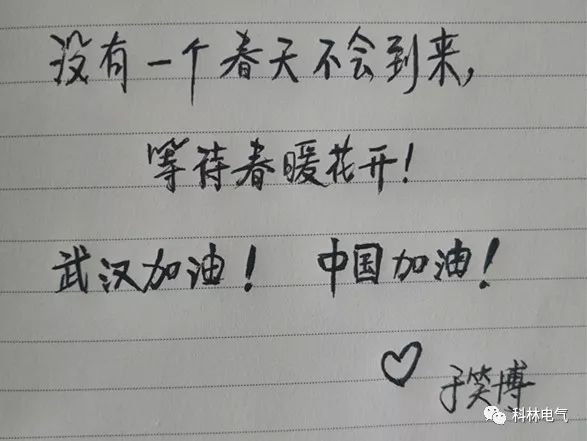 没有一个春天不会到来,
等待春暖花开!
武汉加油! 中国加油!
♡ 于笑博
科林电气